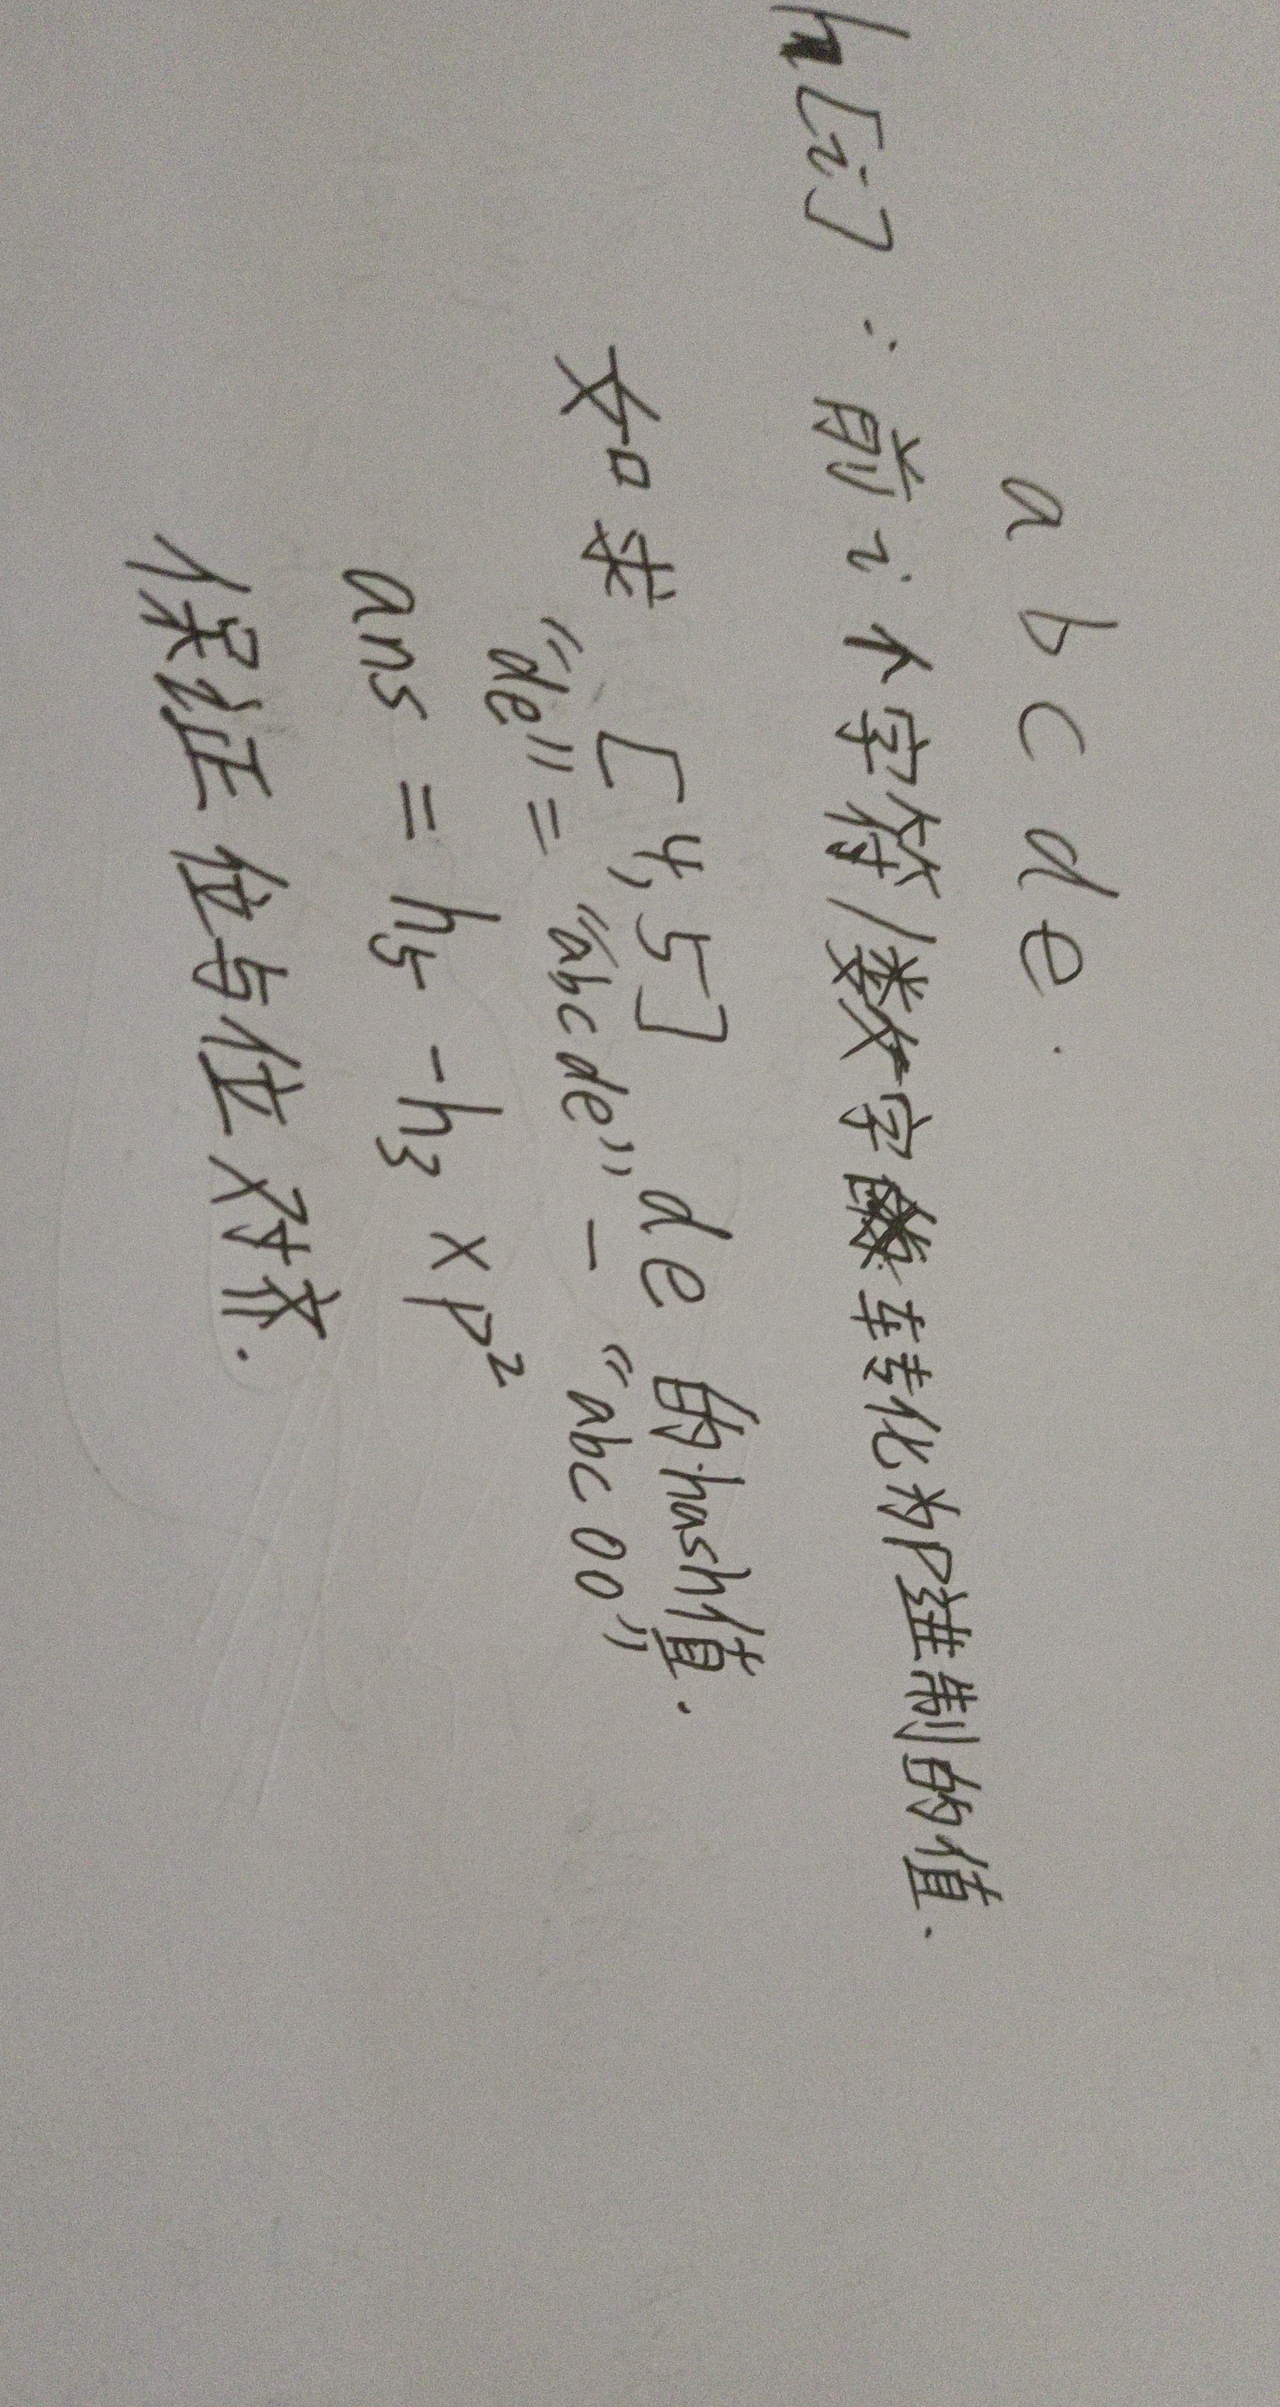 a b c d e.
h[i]:前i个字符/数字转化为P进制的值.
如求 [4,5] de 的hash值.
"de" = "abcde" - "abc00"
ans = h5 - h3 × P²
保证位与位对齐.